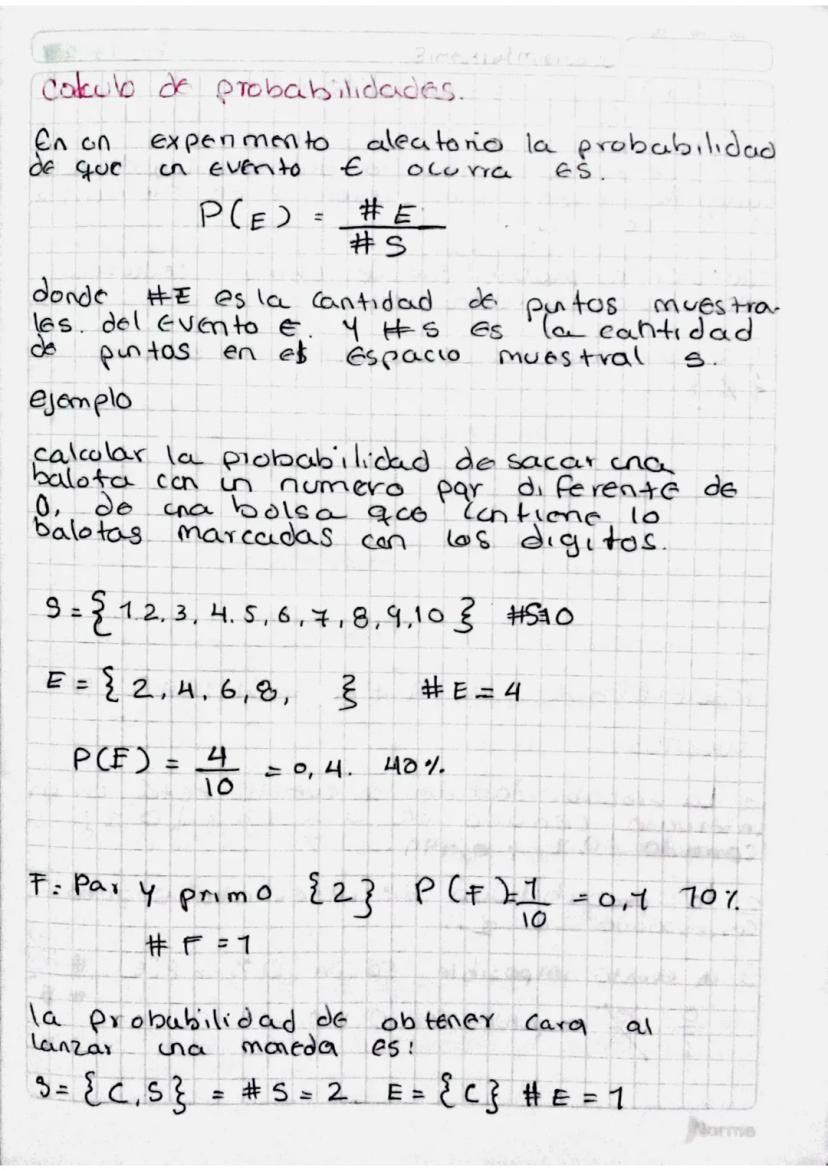 calculo de probabilidades.
En un experimento aleatorio la probabilidad
de que un evento E ocurra es.
P(E) = #E / #S
donde #E es la cantidad de puntos muestra-
les. del evento E. y #S es la cantidad
de puntos en el espacio muestral s.
ejemplo
calcular la probabilidad de sacar una
balota con un numero par diferente de
0, de una bolsa que contiene 10
balotas marcadas con los digitos.
S = { 1 2, 3, 4. 5, 6, 7, 8, 9, 10 } #S=10
E = { 2, 4, 6, 8, } # E = 4
P(E) = 4/10 = 0,4. 40%.
F: Par y primo {2} P(F)=1/10 = 0,1 10%
# F = 1
la probubilidad de obtener cara al
lanzar una moneda es:
S= {C,S} = # S = 2 E = {C} # E = 1
Norma